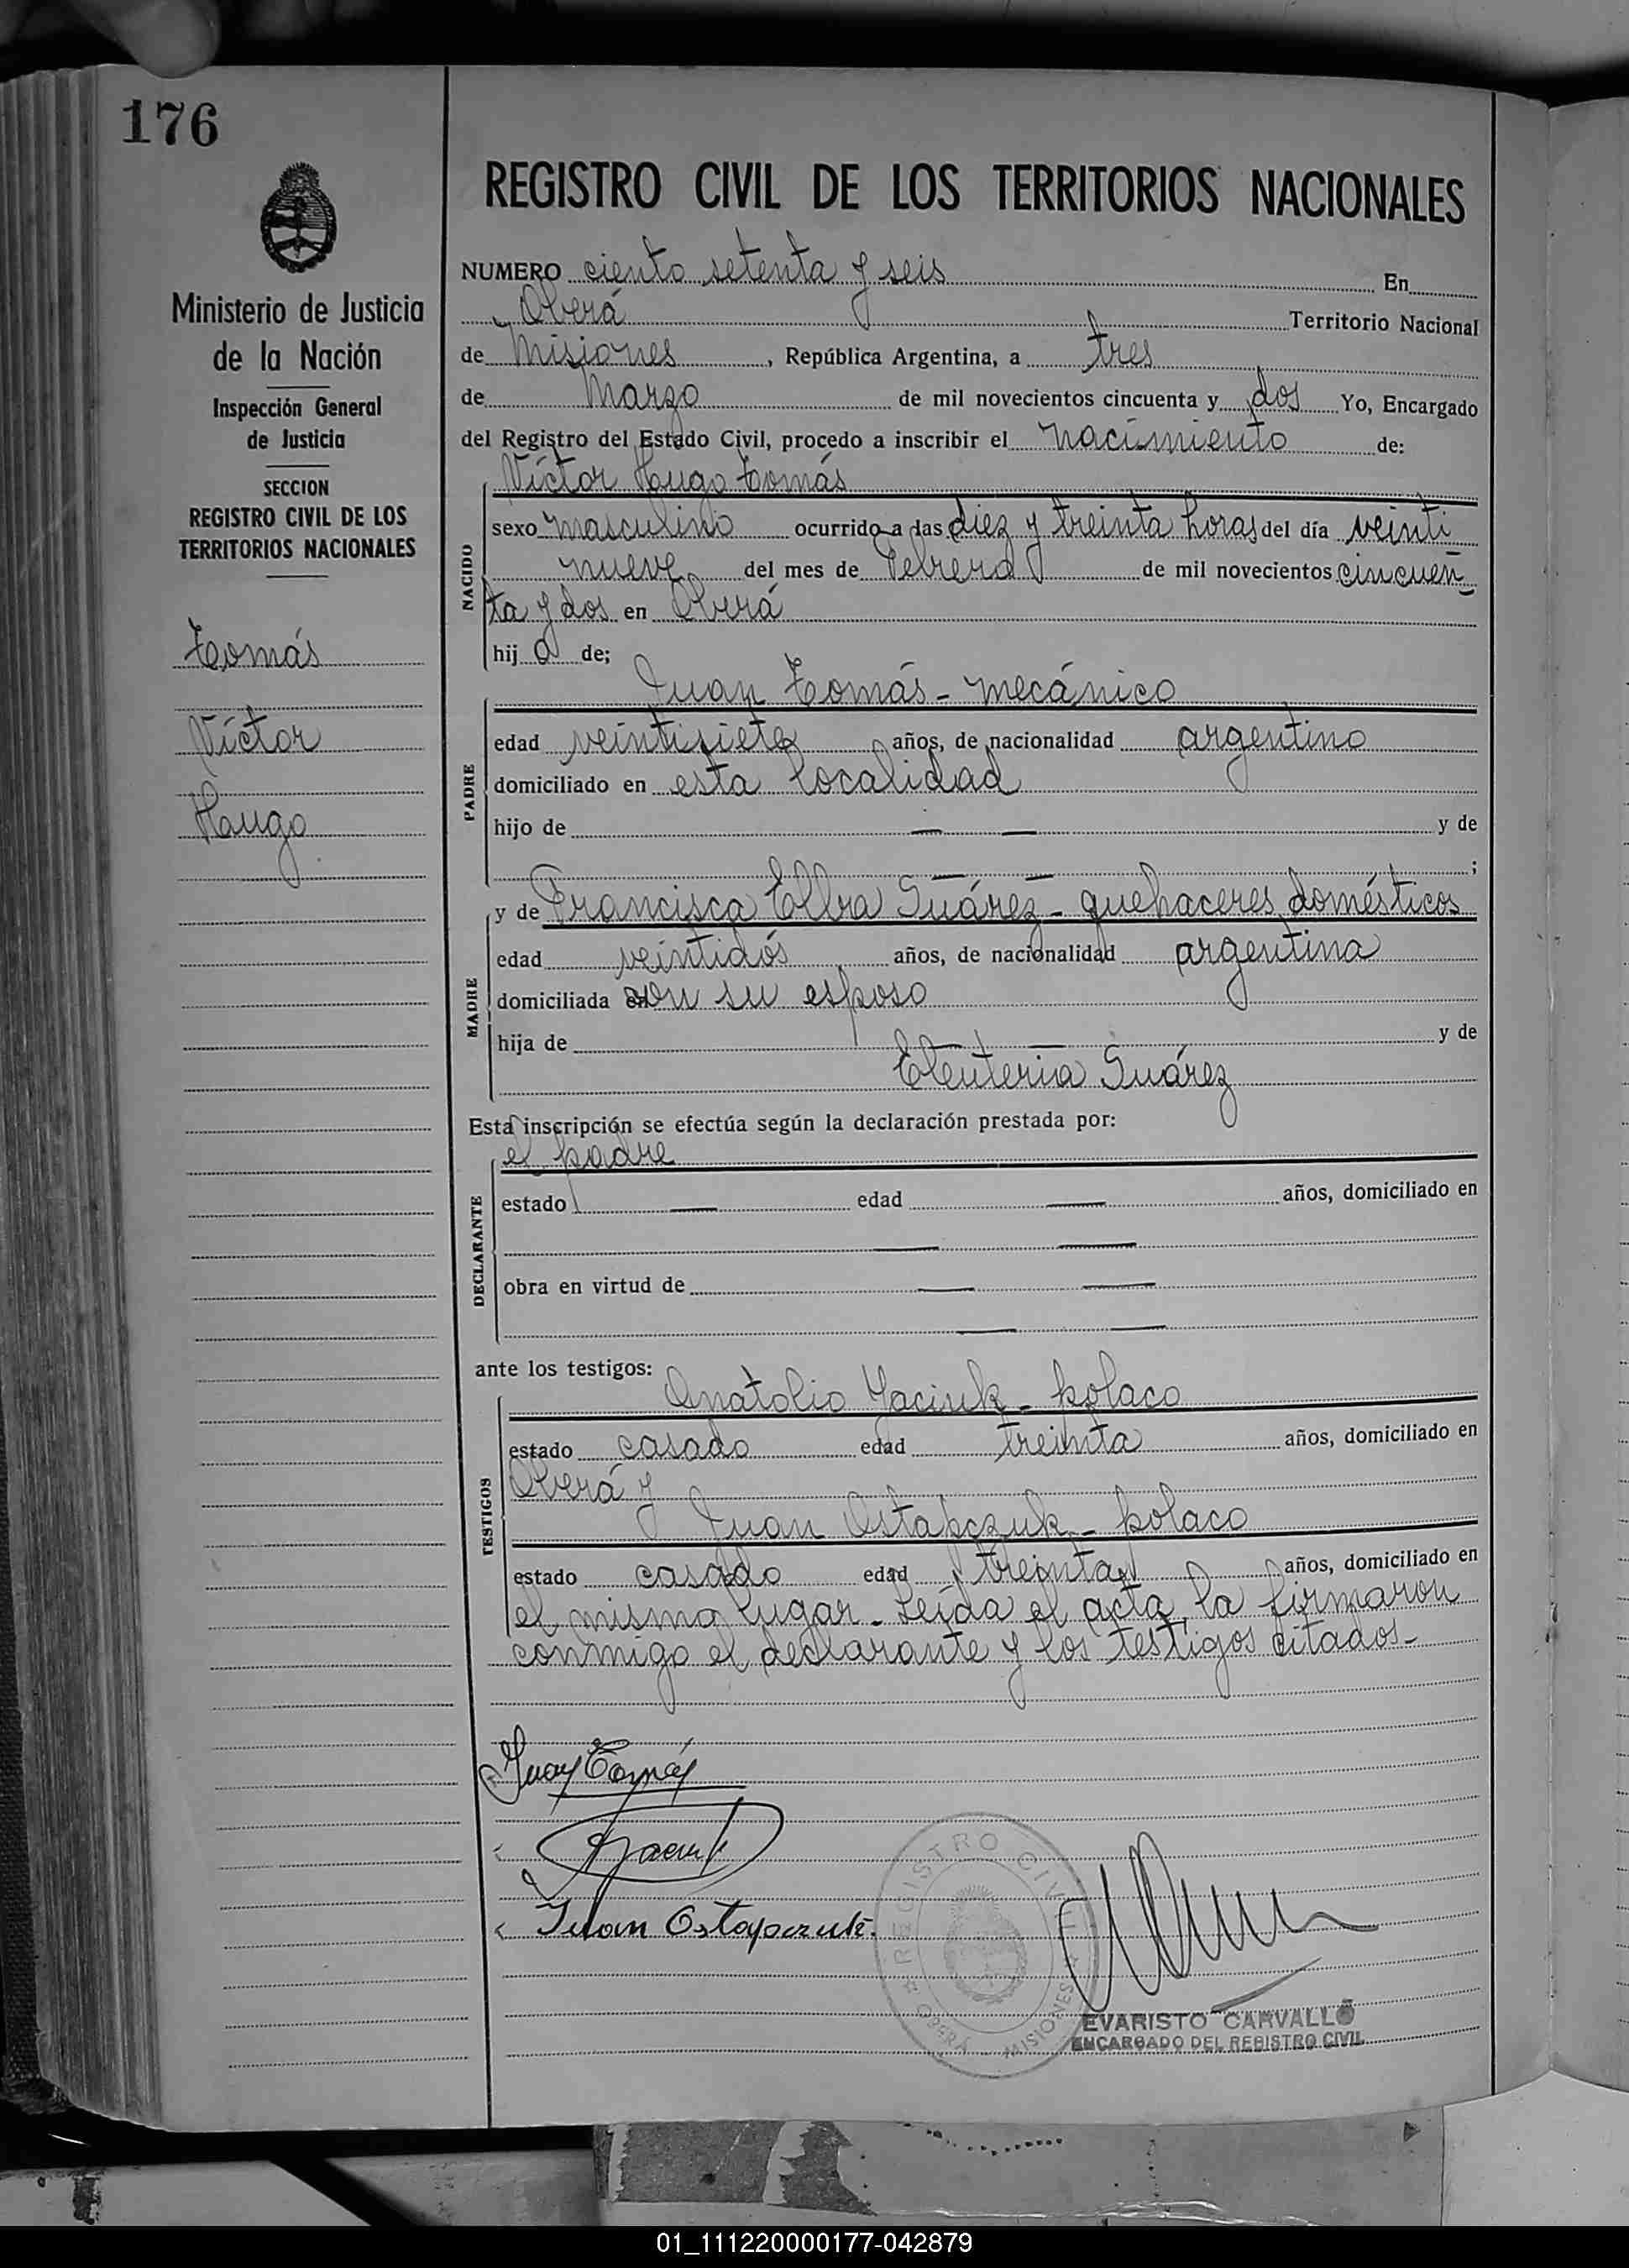 176
Ministerio de Justicia
de la Nación
Inspección General
de Justicia
SECCION
REGISTRO CIVIL DE LOS
TERRITORIOS NACIONALES
Tomás
Víctor
Hugo
REGISTRO CIVIL DE LOS TERRITORIOS NACIONALES
NUMERO ciento setenta y seis En
Oberá Territorio Nacional
de Misiones, República Argentina, a tres
de Marzo de mil novecientos cincuenta y dos Yo, Encargado
del Registro del Estado Civil, procedo a inscribir el nacimiento de:
Víctor Hugo Tomás
NACIDO
sexo masculino ocurrido a las diez y treinta horas del día veinti
nueve del mes de Febrero de mil novecientos cincuen
ta y dos en Oberá
hij o de;
Juan Tomás - mecánico
PADRE
edad veintisiete años, de nacionalidad argentino
domiciliado en esta localidad
hijo de — — y de
— — ;
y de Francisca Elba Suárez - quehaceres domésticos
MADRE
edad veintidós años, de nacionalidad argentina
domiciliada con su esposo
hija de — — y de
Eleuteria Suárez
Esta inscripción se efectúa según la declaración prestada por:
el padre
DECLARANTE
estado — edad — años, domiciliado en
— —
obra en virtud de — —
— —
ante los testigos:
Anatolio Yaciuk - polaco
TESTIGOS
estado casado edad treinta años, domiciliado en
Oberá y
Juan Ostapczuk - polaco
estado casado edad treinta años, domiciliado en
el mismo lugar - Leída el acta, la firmaron
conmigo el declarante y los testigos citados -
Juan Tomás
Juan Ostapczuk.
REGISTRO CIVIL
OBERÁ MISIONES
EVARISTO CARVALLO
ENCARGADO DEL REGISTRO CIVIL
01_111220000177-042879